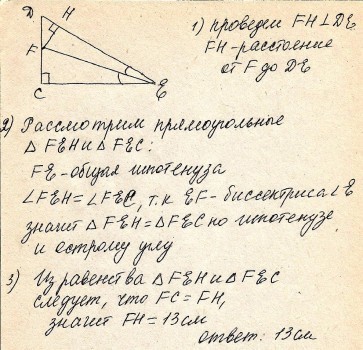 D
H
F
C
E
1) проведем FH⊥DE
FH - расстояние
от F до DE
2) Рассмотрим прямоугольные
△FEH и △FEC:
FE - общая гипотенуза
∠FEH = ∠FEC, т.к EF - биссектриса ∠E
значит △FEH = △FEC по гипотенузе
и острому углу
3) Из равенства △FEH и △FEC
следует, что FC = FH,
значит FH = 13 см
ответ: 13 см